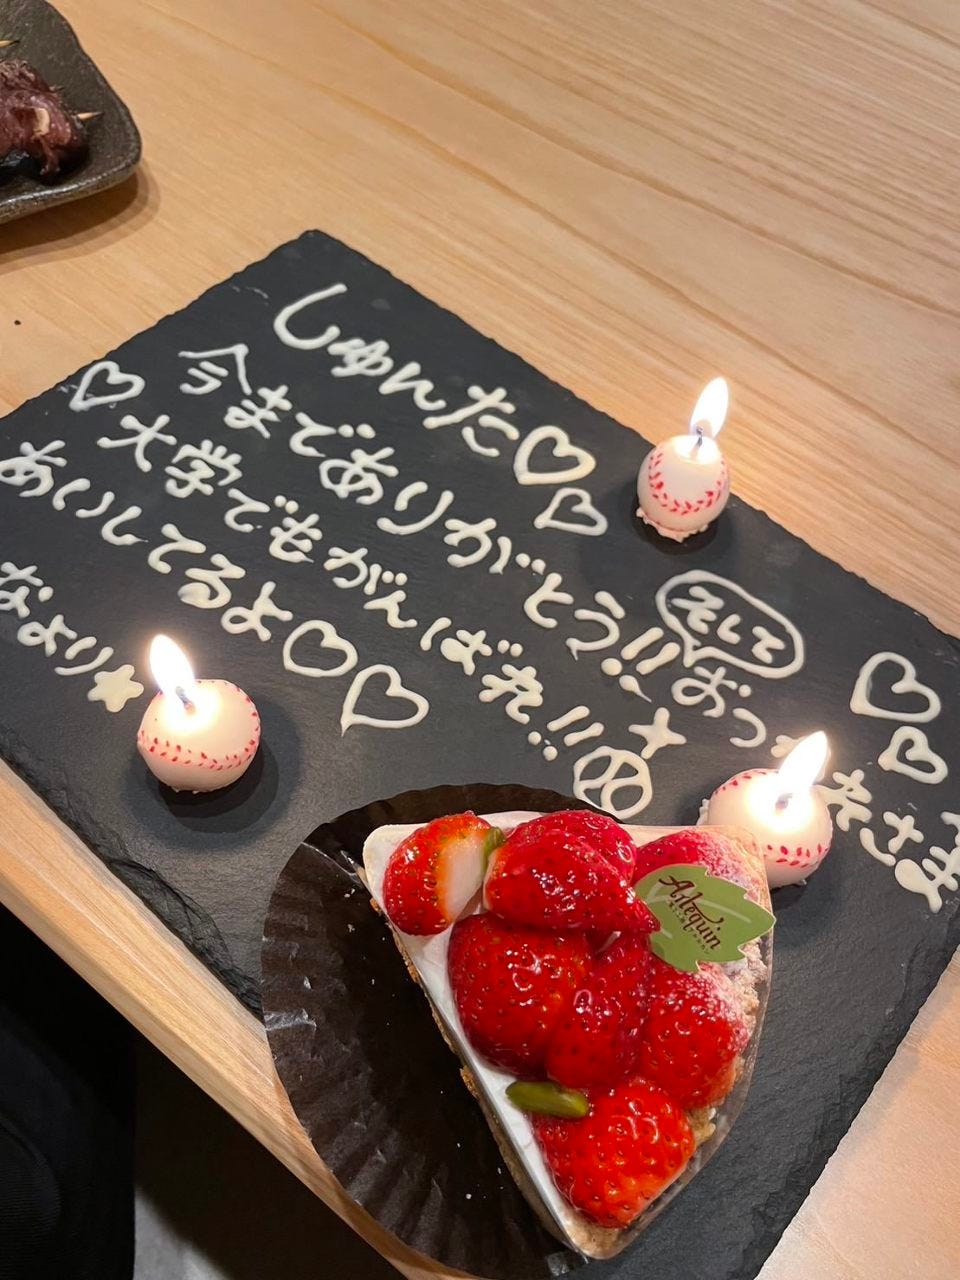 しゅんた♡♡
今までありがとう!!
そして
おつ
大学でもがんばれ!!
あいしてるよ♡♡
なより☆
Arlequin